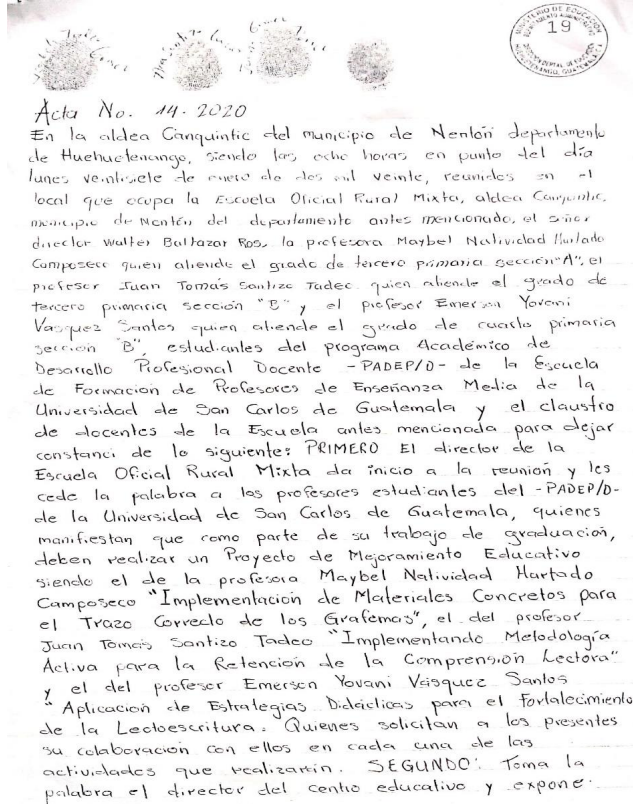 19
MINISTERIO DE EDUCACIÓN
HUEHUETENANGO, GUATEMALA
Acta No. 14-2020
En la aldea Canquintic del municipio de Nentón departamento
de Huehuetenango, siendo las ocho horas en punto del día
lunes veintisiete de enero de dos mil veinte, reunidos en el
local que ocupa la Escuela Oficial Rural Mixta, aldea Canquintic,
municipio de Nentón del departamento antes mencionado, el señor
director Walter Baltazar Ros, la profesora Maybel Natividad Hurtado
Camposeco quien atiende el grado de tercero primaria sección "A", el
profesor Juan Tomás Santizo Tadeo quien atiende el grado de
tercero primaria sección "B" y el profesor Emerson Yovani
Vasquez Santos quien atiende el grado de cuarto primaria
sección "B", estudiantes del programa Académico de
Desarrollo Profesional Docente -PADEP/D- de la Escuela
de Formación de Profesores de Enseñanza Media de la
Universidad de San Carlos de Guatemala y el claustro
de docentes de la Escuela antes mencionada para dejar
constanci de lo siguiente: PRIMERO El director de la
Escuela Oficial Rural Mixta da inicio a la reunión y les
cede la palabra a los profesores estudiantes del -PADEP/D-
de la Universidad de San Carlos de Guatemala, quienes
manifiestan que como parte de su trabajo de graduación,
deben realizar un Proyecto de Mejoramiento Educativo
siendo el de la profesora Maybel Natividad Hurtado
Camposeco "Implementación de Materiales Concretos para
el Trazo Correcto de los Grafemas", el del profesor
Juan Tomás Santizo Tadeo "Implementando Metodología
Activa para la Retención de la Comprensión Lectora"
y el del profesor Emerson Yovani Vásquez Santos
"Aplicación de Estrategias Didácticas para el Fortalecimiento
de la Lectoescritura. Quienes solicitan a los presentes
su colaboración con ellos en cada una de las
actividades que realizarán. SEGUNDO: Toma la
palabra el director del centro educativo y expone: